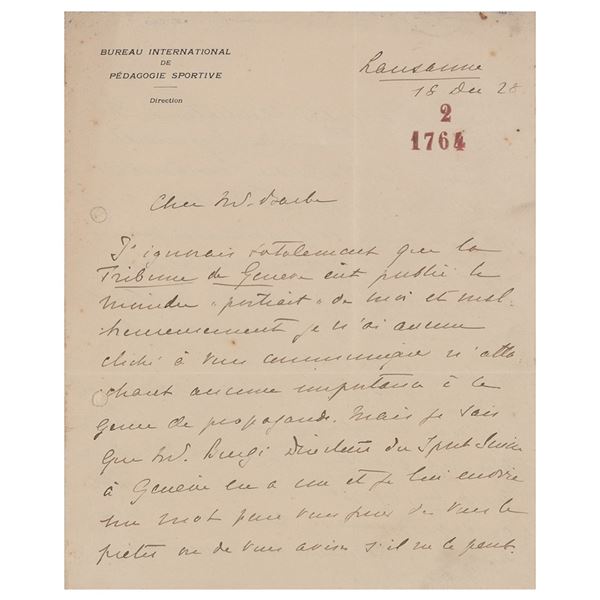 BUREAU INTERNATIONAL
DE
PÉDAGOGIE SPORTIVE
Direction
Lausanne
18 Dec 28
2
1764
Cher M.
J'ignorais totalement que la
Tribune de Genève eût publié le
moindre "portrait" de moi et mal-
heureusement je n'ai aucun
cliché à vous communiquer n'atta-
chant aucune importance à ce
genre de propagande. Mais je sais
que M. Directeur du Sport Suisse
à Genève en a un et je lui envoie
un mot pour vous le
prêter ou de vous aviser s'il ne le peut.